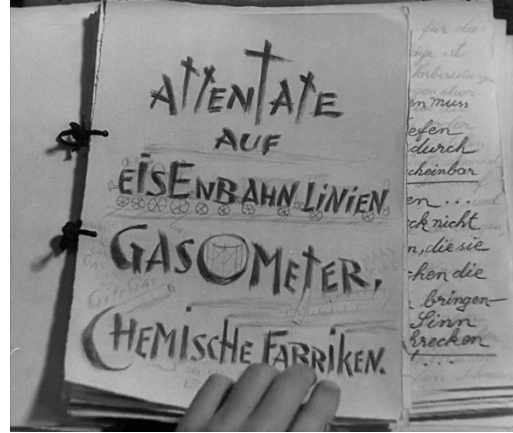 ATTENTATE
AUF
EISENBAHNLINIEN
GASOMETER,
CHEMISCHE FABRIKEN.
für das
ist
en muss
efen
durch
cheinbar
en ...
ck nicht
n, die sie
hen die
bringen-
Sinn
hrecken
...